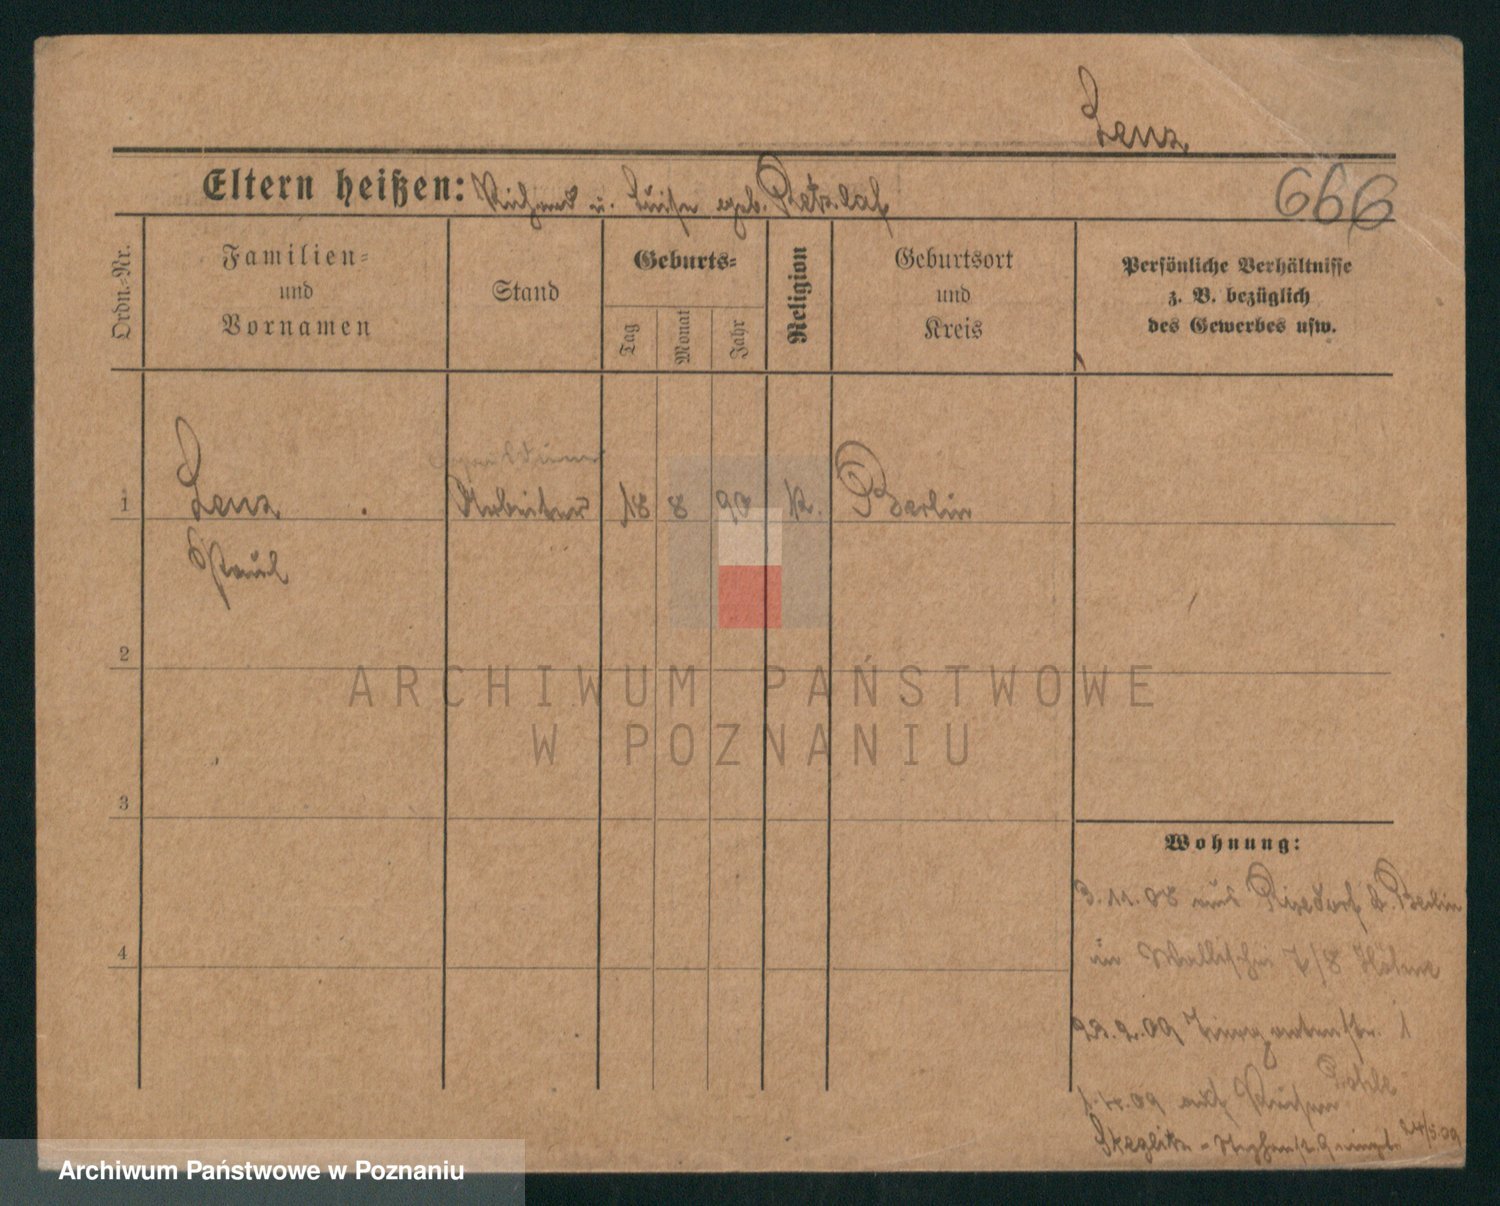 Lenz
Eltern heißen: Richard u. Luise geb. Retzlaf
666
Ordn.-Nr.
Familien-
und
Vornamen
Stand
Geburts-
Tag
Monat
Jahr
Religion
Geburtsort
und
Kreis
Persönliche Verhältnisse
z. B. bezüglich
des Gewerbes usw.
1
Lenz
Arbeiter
18
8
90
k.
Berlin
Paul
2
ARCHIWUM PAŃSTWOWE
W POZNANIU
3
Wohnung:
3.11.08 aus Rixdorf b. Berlin
in Wallischei 7/8
4
23.2.09 1
1.4.09 auf Reisen
Steglitz 24/5.09
Archiwum Państwowe w Poznaniu